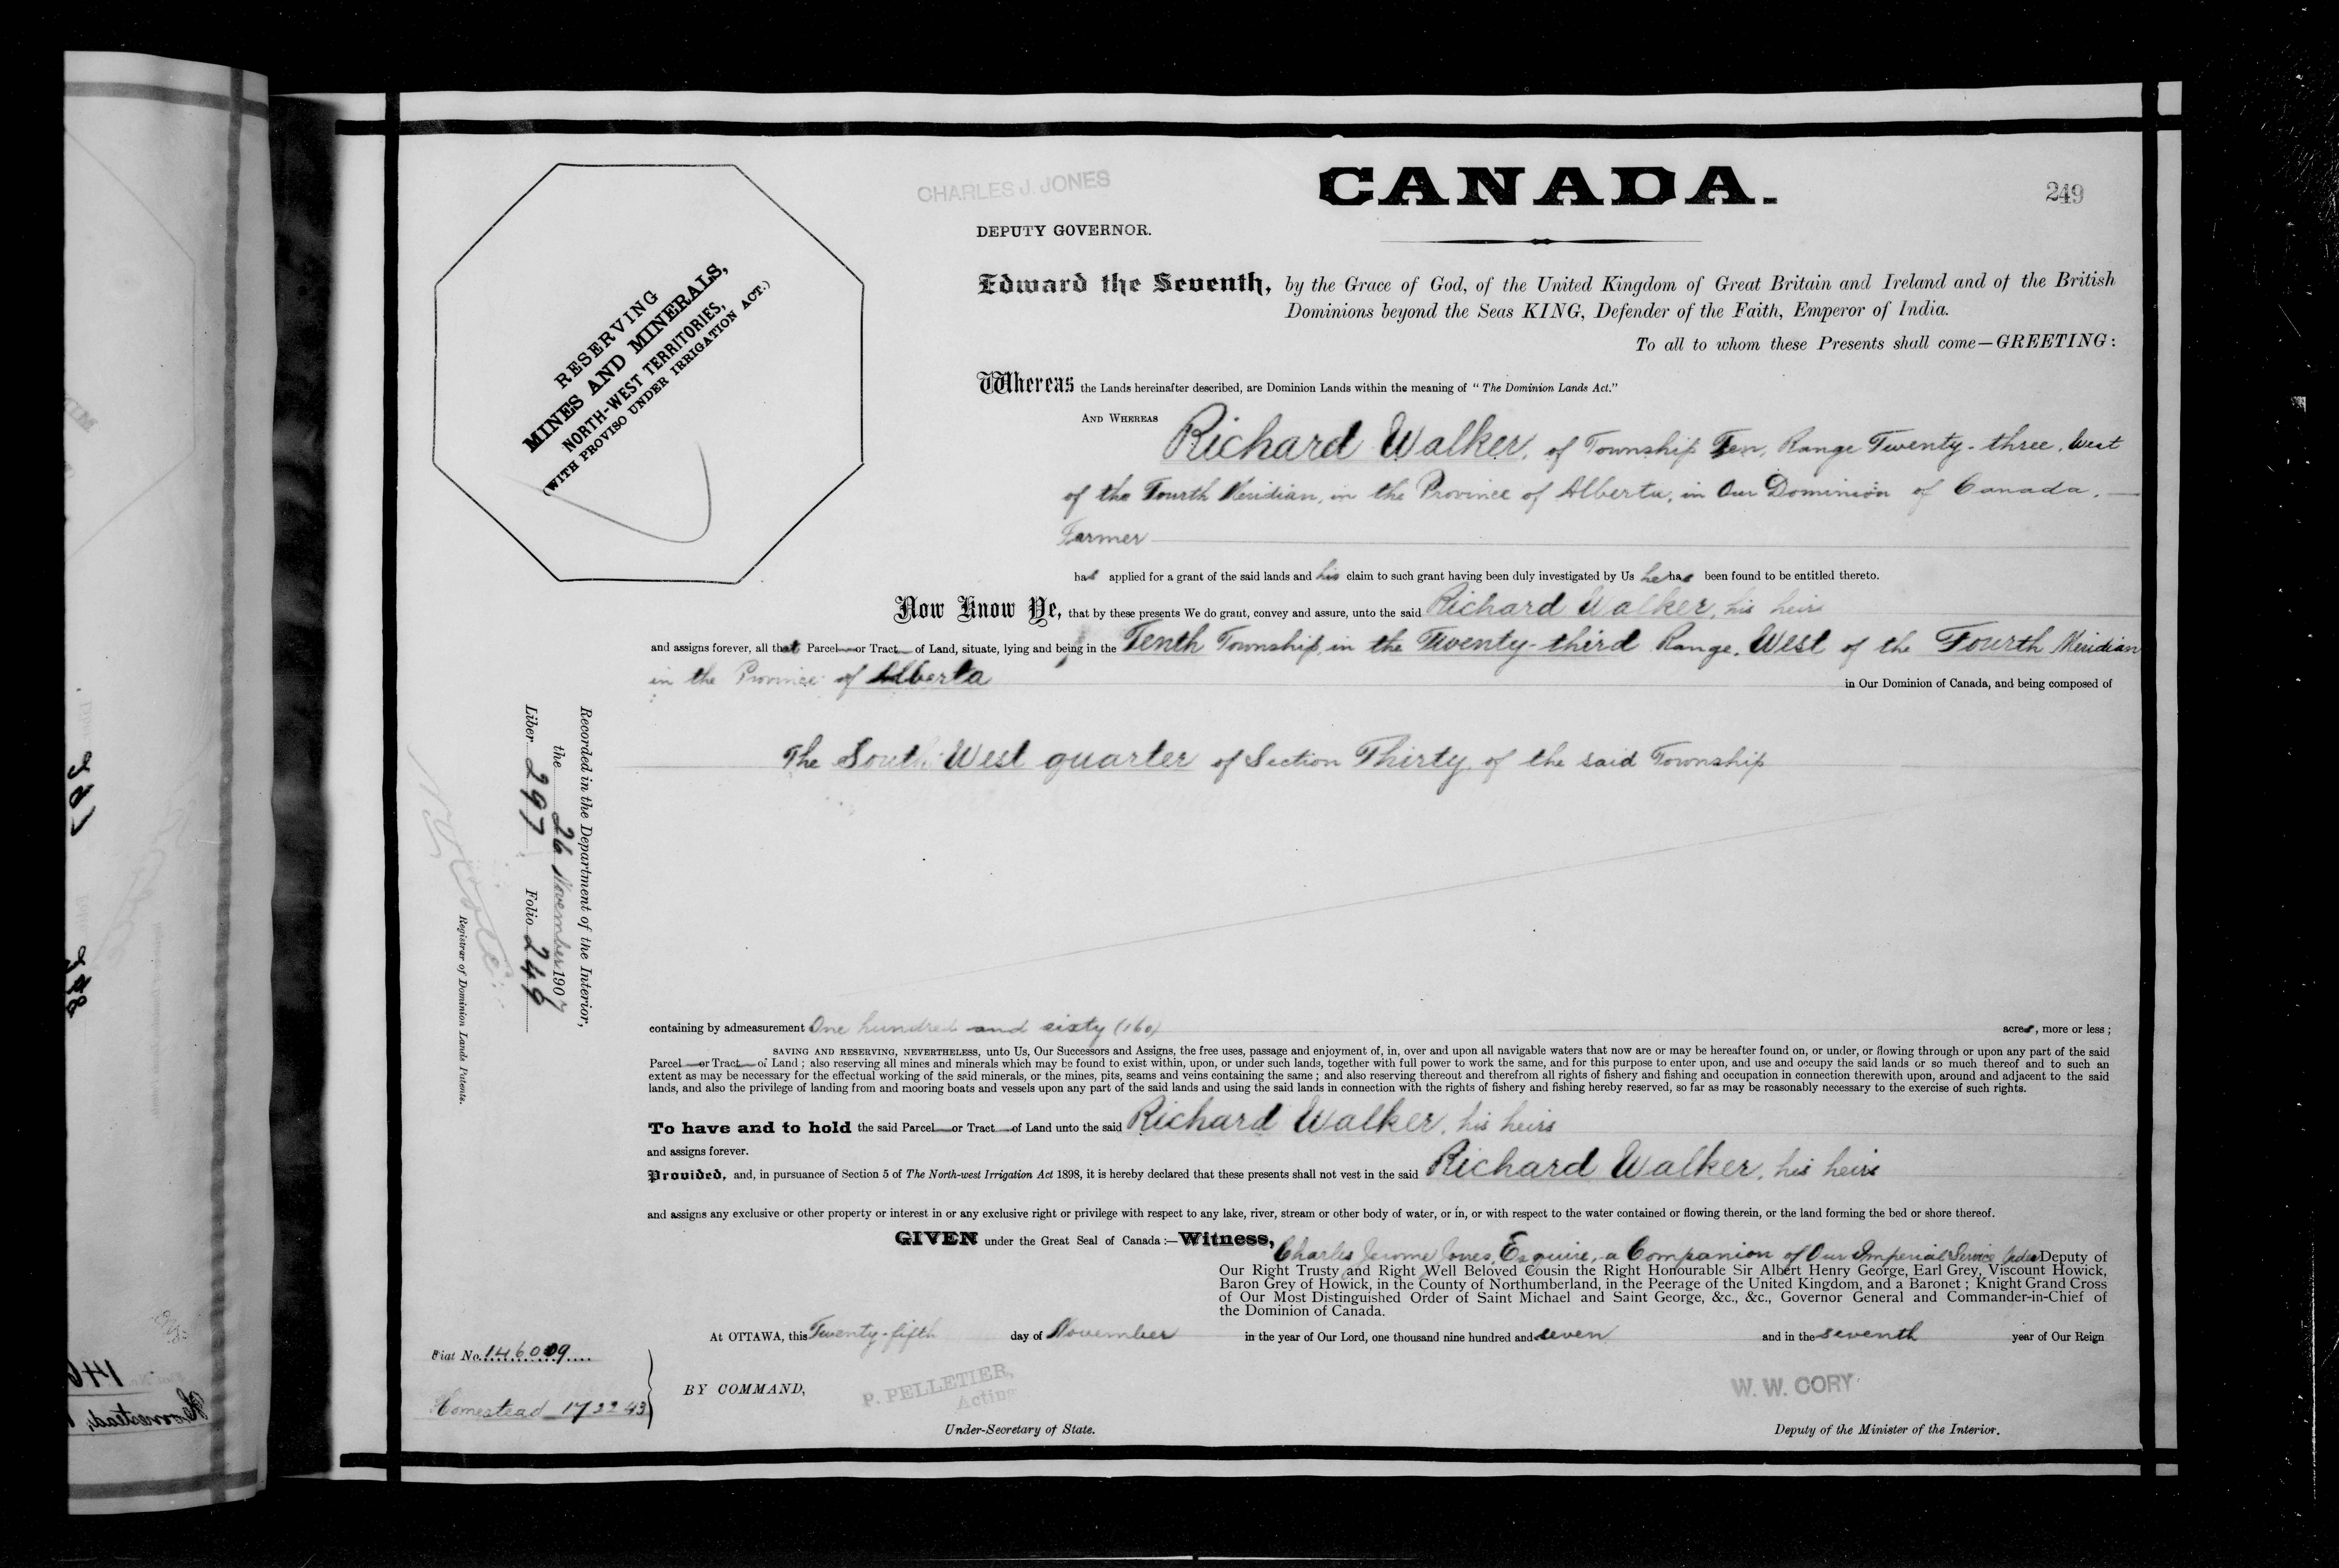 CHARLES J. JONES
CANADA.
249
DEPUTY GOVERNOR.
RESERVING
MINES AND MINERALS,
NORTH-WEST TERRITORIES,
(WITH PROVISO UNDER IRRIGATION ACT.)
Edward the Seventh, by the Grace of God, of the United Kingdom of Great Britain and Ireland and of the British
Dominions beyond the Seas KING, Defender of the Faith, Emperor of India.
To all to whom these Presents shall come—GREETING:
Whereas the Lands hereinafter described, are Dominion Lands within the meaning of "The Dominion Lands Act."
AND WHEREAS Richard Walker, of Township Ten, Range Twenty-three, West
of the Fourth Meridian, in the Province of Alberta, in Our Dominion of Canada,
Farmer
has applied for a grant of the said lands and his claim to such grant having been duly investigated by Us he has been found to be entitled thereto.
Now Know Ye, that by these presents We do grant, convey and assure, unto the said Richard Walker, his heirs
and assigns forever, all that Parcel or Tract of Land, situate, lying and being in the Tenth Township, in the Twenty-third Range, West of the Fourth Meridian
in the Province of Alberta in Our Dominion of Canada, and being composed of
The South West quarter of Section Thirty of the said Township
Recorded in the Department of the Interior,
the 26 November 1907
Liber 297 Folio 249
Registrar of Dominion Lands Patents.
containing by admeasurement One hundred and sixty (160) acres, more or less;
SAVING AND RESERVING, NEVERTHELESS, unto Us, Our Successors and Assigns, the free uses, passage and enjoyment of, in, over and upon all navigable waters that now are or may be hereafter found on, or under, or flowing through or upon any part of the said
Parcel or Tract of Land; also reserving all mines and minerals which may be found to exist within, upon, or under such lands, together with full power to work the same, and for this purpose to enter upon, and use and occupy the said lands or so much thereof and to such an
extent as may be necessary for the effectual working of the said minerals, or the mines, pits, seams and veins containing the same; and also reserving thereout and therefrom all rights of fishery and fishing and occupation in connection therewith upon, around and adjacent to the said
lands, and also the privilege of landing from and mooring boats and vessels upon any part of the said lands and using the said lands in connection with the rights of fishery and fishing hereby reserved, so far as may be reasonably necessary to the exercise of such rights.
To have and to hold the said Parcel or Tract of Land unto the said Richard Walker, his heirs
and assigns forever.
Provided, and, in pursuance of Section 5 of The North-west Irrigation Act 1898, it is hereby declared that these presents shall not vest in the said Richard Walker, his heirs
and assigns any exclusive or other property or interest in or any exclusive right or privilege with respect to any lake, river, stream or other body of water, or in, or with respect to the water contained or flowing therein, or the land forming the bed or shore thereof.
GIVEN under the Great Seal of Canada:—Witness, Charles Jerome Jones, Esquire, a Companion of Our Imperial Service Order Deputy of
Our Right Trusty and Right Well Beloved Cousin the Right Honourable Sir Albert Henry George, Earl Grey, Viscount Howick,
Baron Grey of Howick, in the County of Northumberland, in the Peerage of the United Kingdom, and a Baronet; Knight Grand Cross
of Our Most Distinguished Order of Saint Michael and Saint George, &c., &c., Governor General and Commander-in-Chief of
the Dominion of Canada.
At OTTAWA, this Twenty-fifth day of November in the year of Our Lord, one thousand nine hundred and seven and in the seventh year of Our Reign
Fiat No. 146009
Homestead 172243
BY COMMAND,
P. PELLETIER,
Acting
Under-Secretary of State.
W. W. CORY
Deputy of the Minister of the Interior.